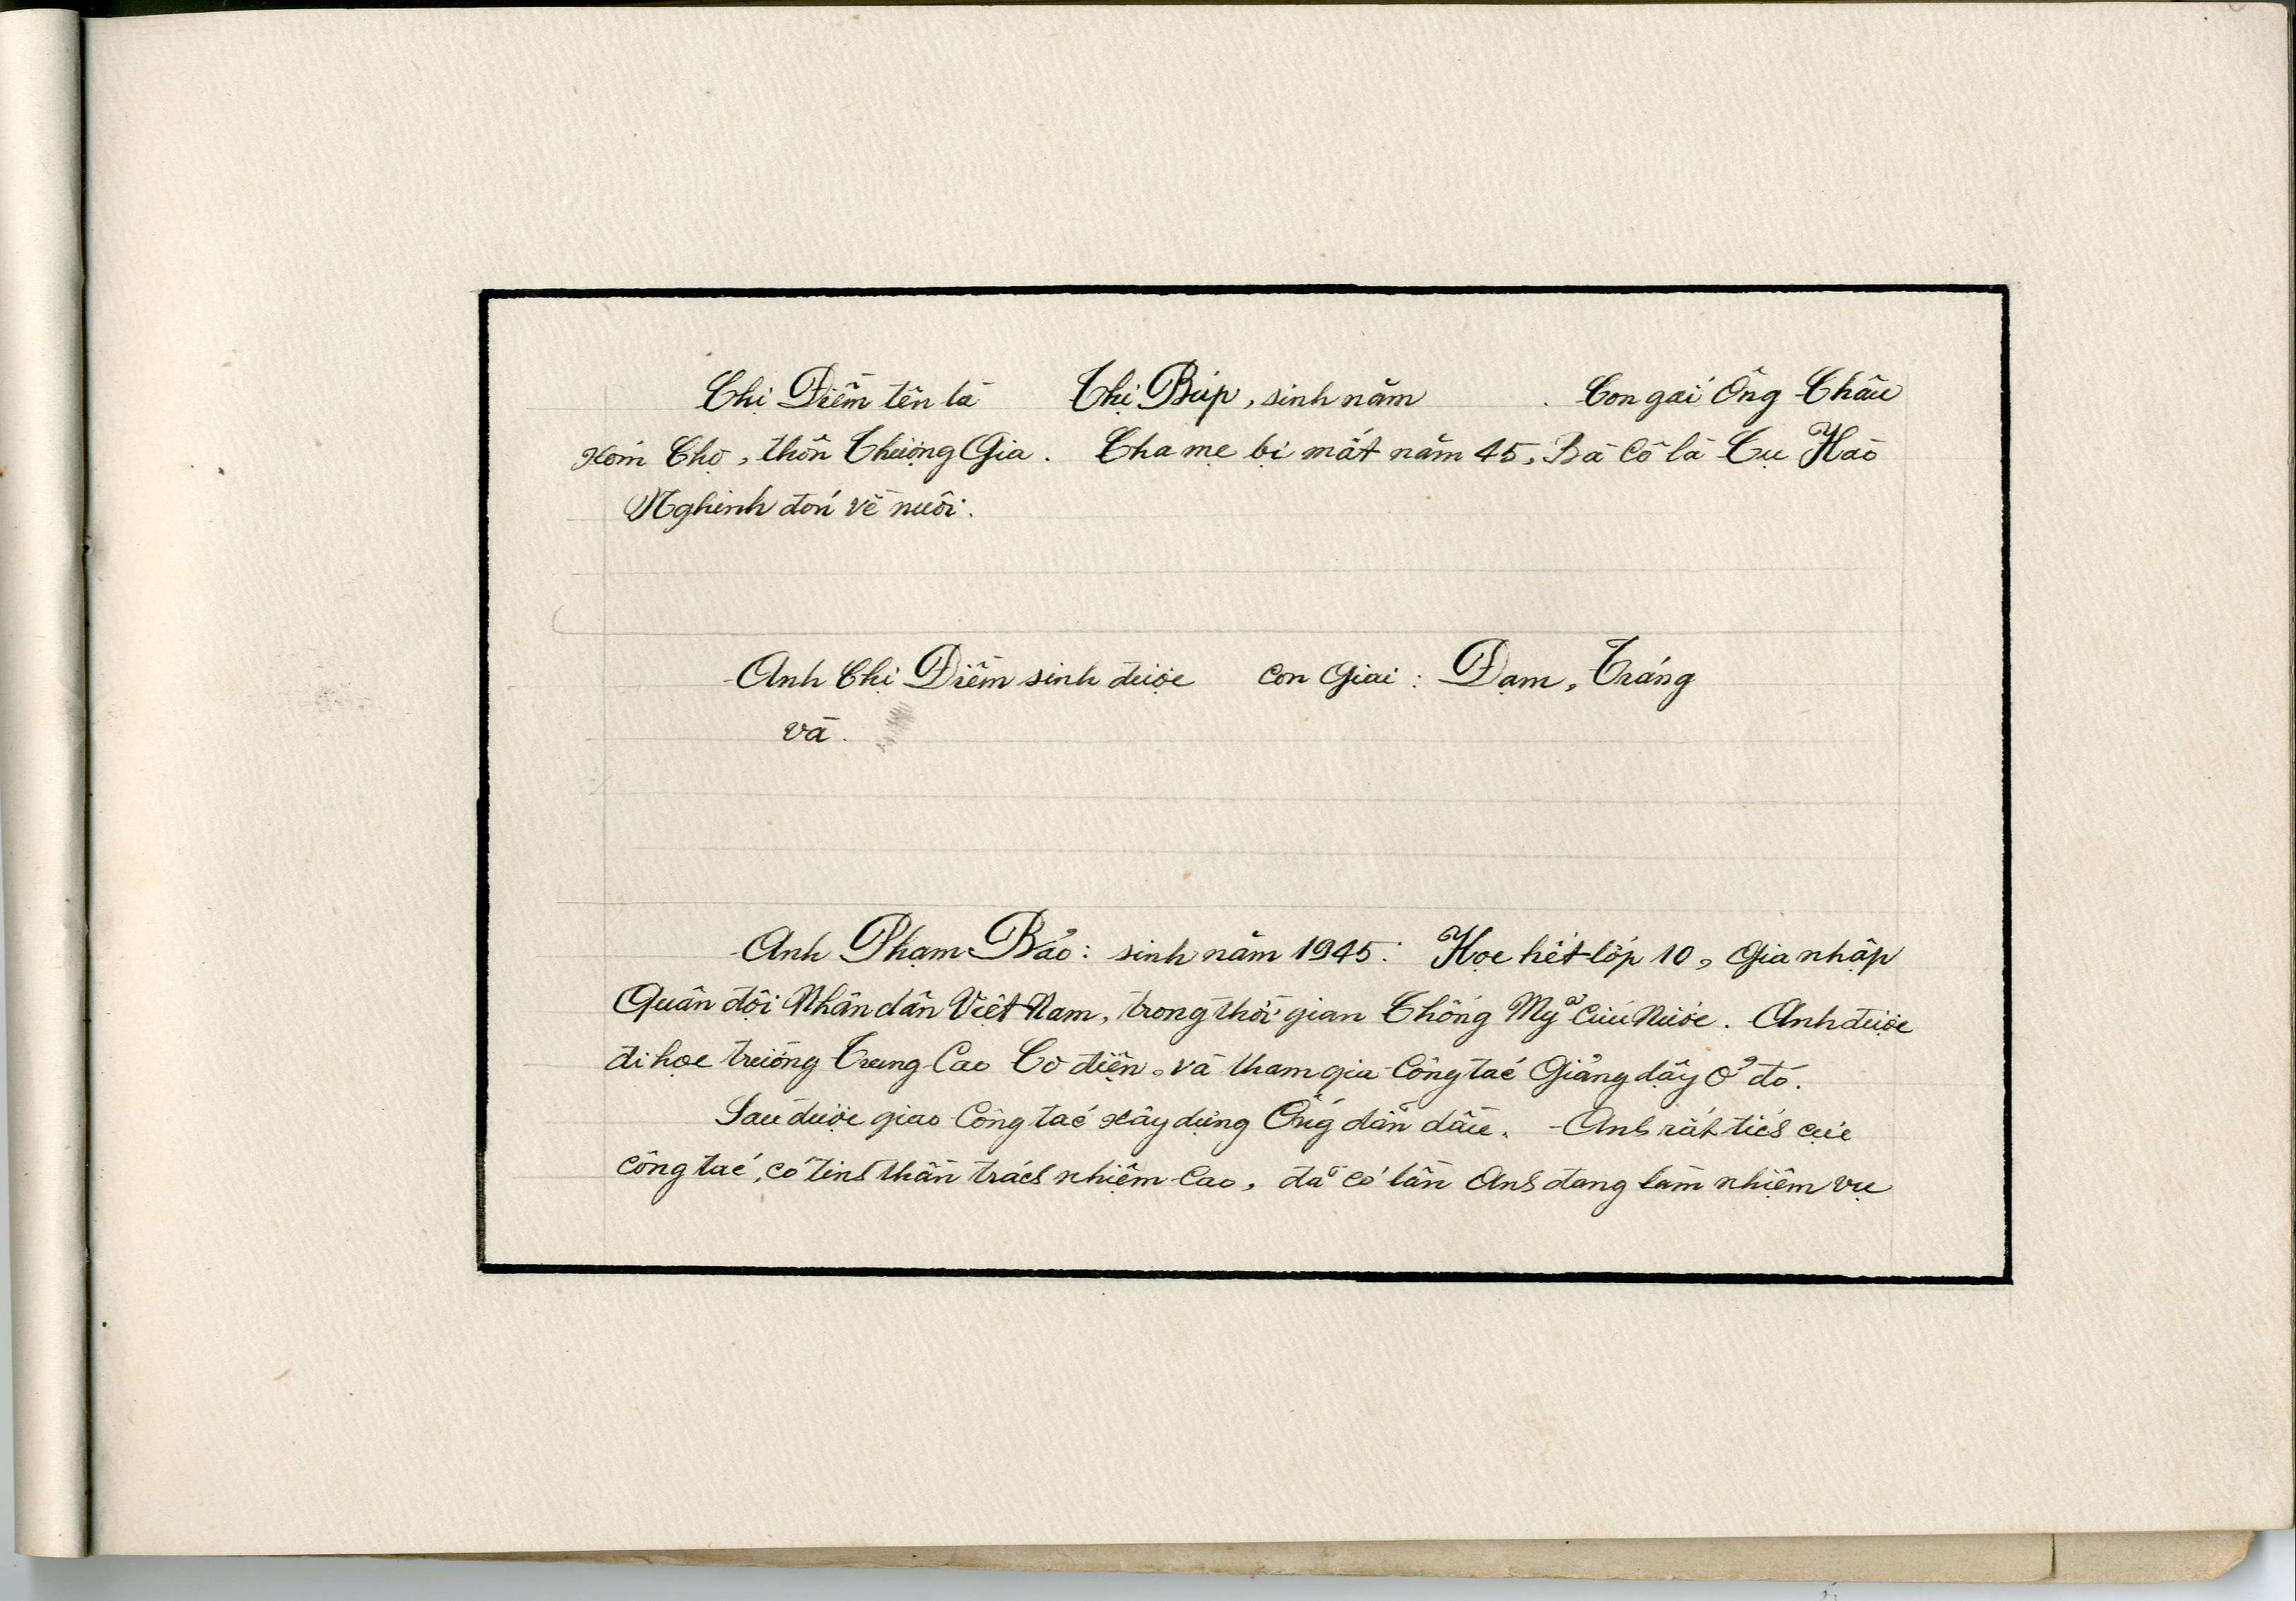 Chị Điềm tên là Thị Búp, sinh năm . Con gái Ông Châu
xóm Chợ, thôn Thượng Gia. Cha mẹ bị mất năm 45, Bà Cô là Cụ Hào
Nghinh đón về nuôi.
Anh Chị Điềm sinh được con Giai: Đạm, Tráng
và.
Anh Phạm Bảo: sinh năm 1945. Học hết lớp 10, Gia nhập
Quân đội Nhân dân Việt Nam, trong thời gian Chống Mỹ Cứu Nước. Anh được
đi học trường Trung Cao Cơ điện, và tham gia Công tác Giảng dậy ở đó.
Sau được giao Công tác xây dựng Ống dẫn dầu. Anh rất tích cực
công tác, có tinh thần trách nhiệm Cao, đã có lần Anh đang làm nhiệm vụ